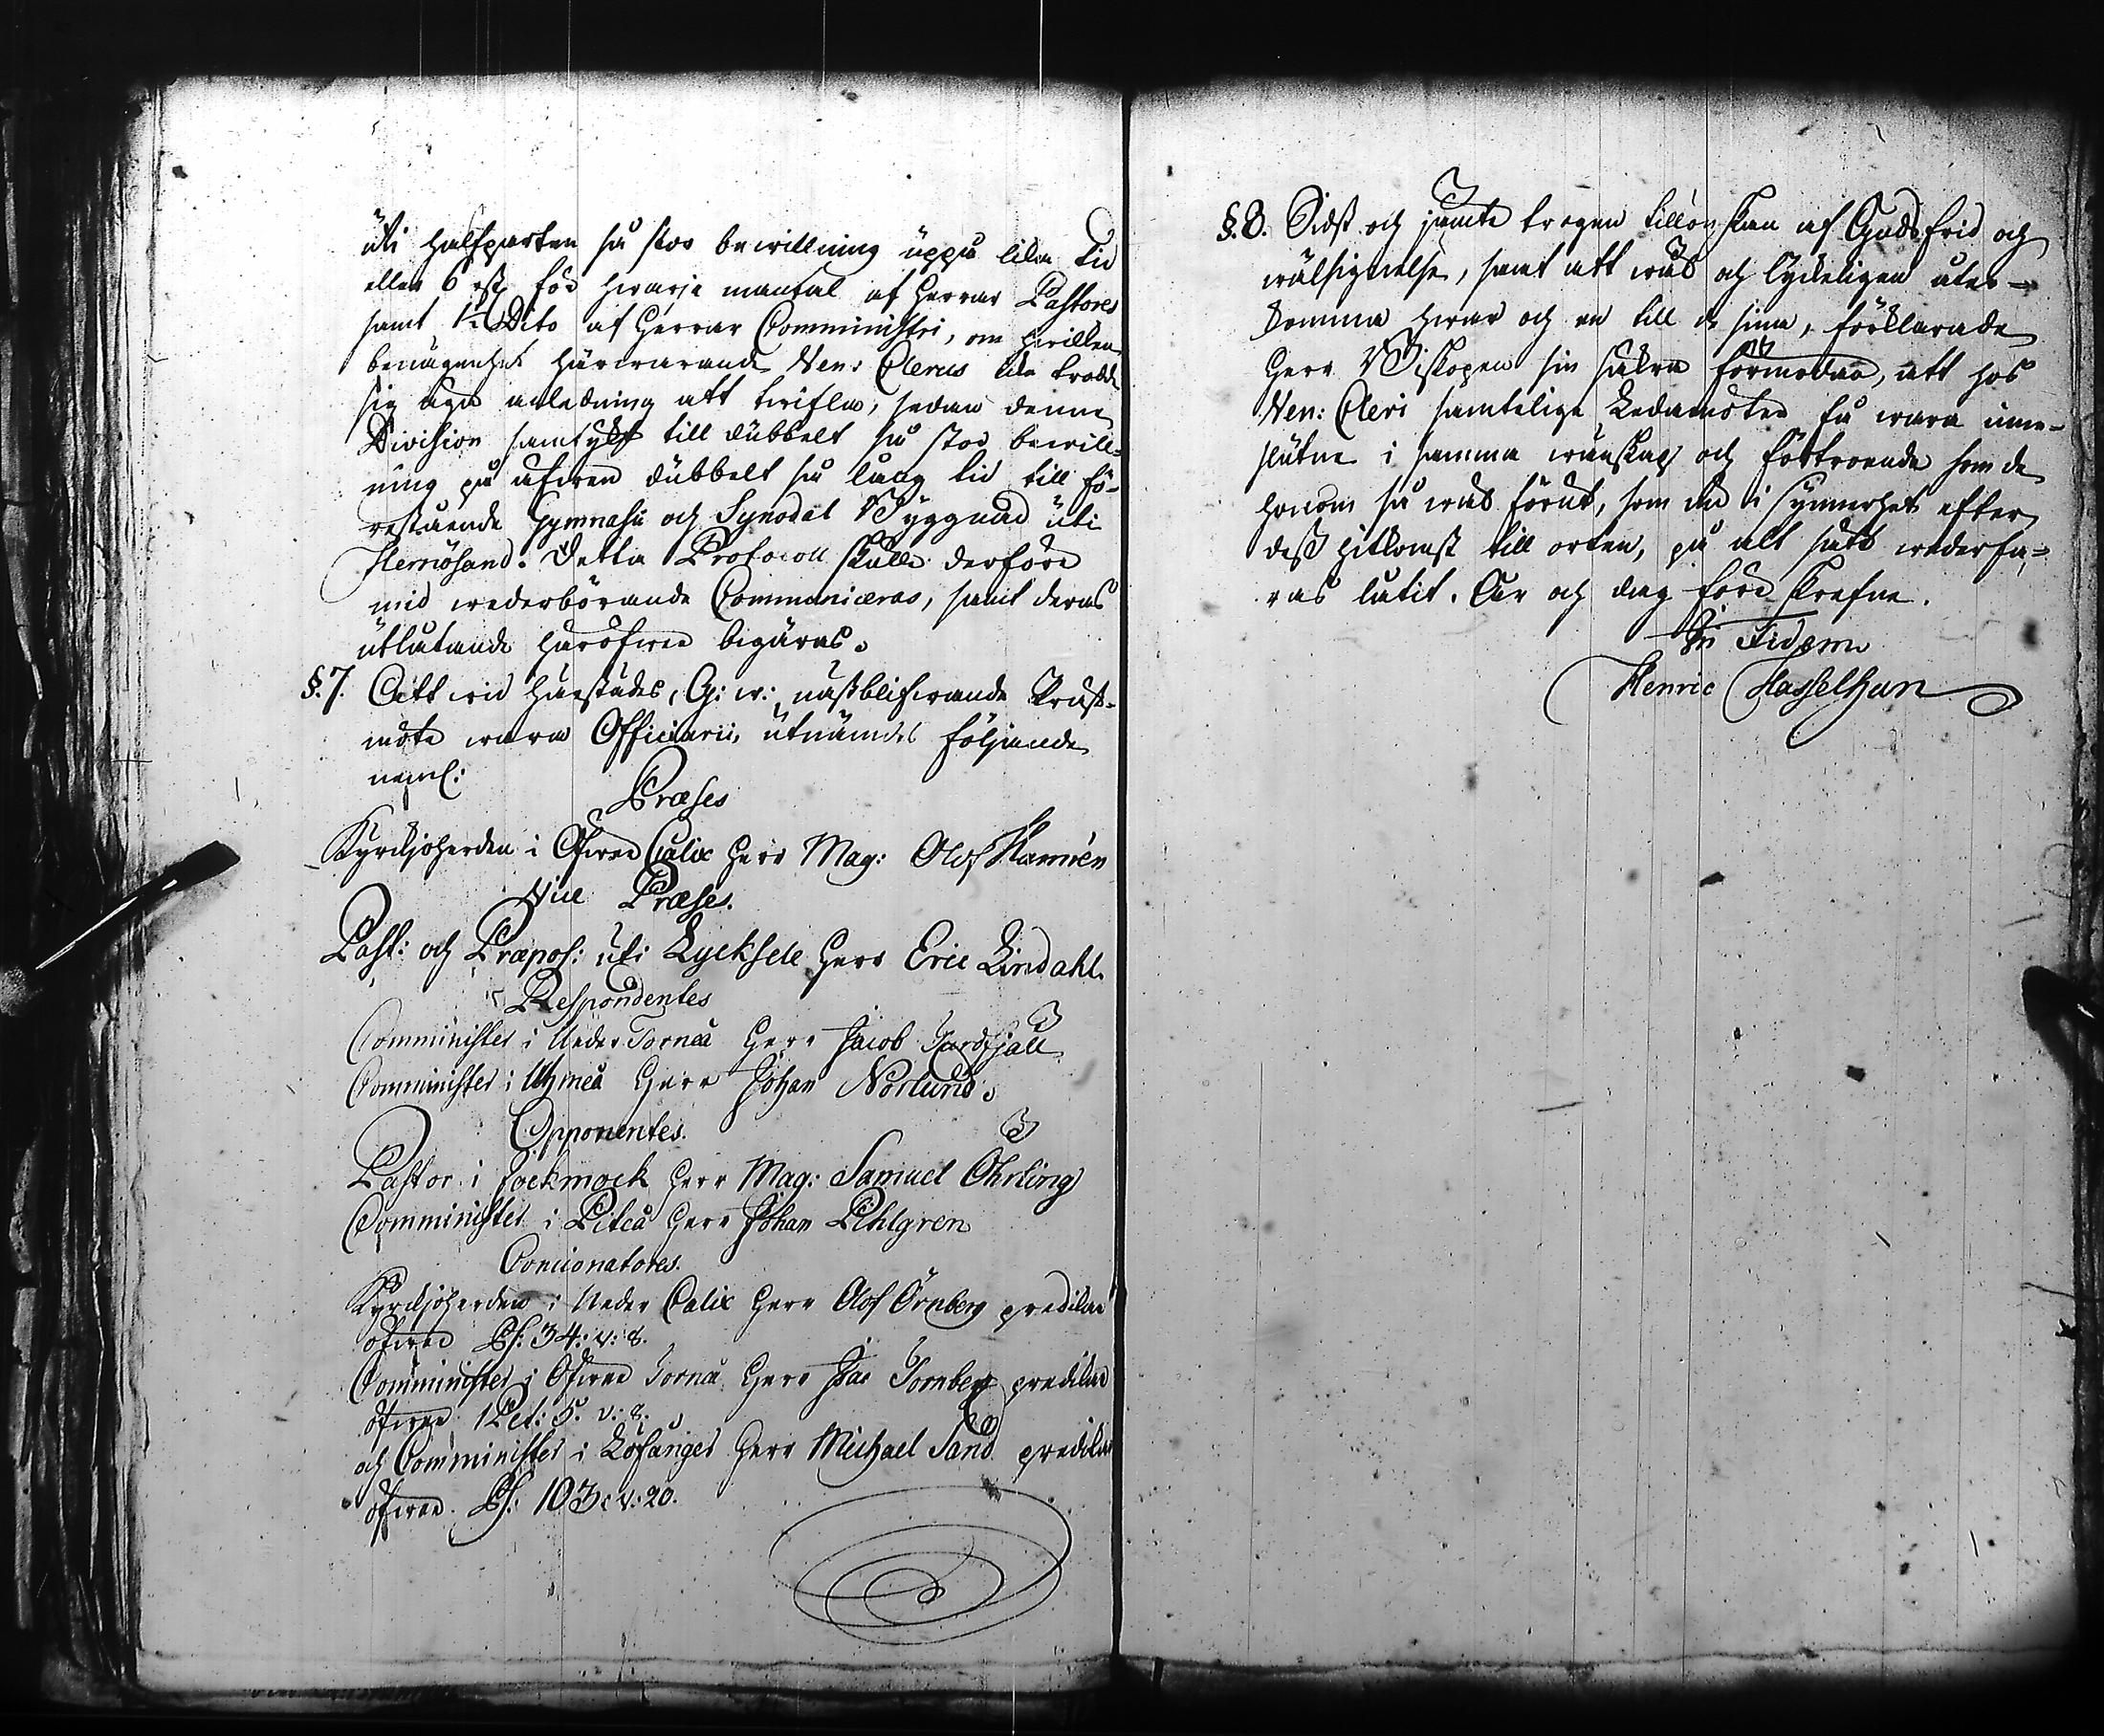 uti halfparten så stor bewillning uppå lika tid
eller 6 rst. för hwarje mantal af Herrar Pastores
samt 1½ Dito af Herrar Comministri, om hwilken
benägenhet härwarande Ven: Clerus icke trodde
sig äga anledning att twifla, sedan denne
Division samtykt till dubbelt så stor bewill-
ning på äfwen dubbelt så lång tid till fö-
restående Gymnasii och Synodal Byggnad uti
Hernösand. Detta Protocoll skulle derföre
med wederbörande Communiceras, samt deras
utlåtande häröfwer begäras.
§.7. Att wid härstädes, G: w: näst blifwande Prest-
möte wara Officiarii, utnämdes följande
neml:
Præses
Kyrckjoherden i Öfwer Calix Herr Mag: Olof Hamrén
Vice Præses.
Past: och Præpos: uti Lycksele Herr Eric Lindahl.
Respondentes
Comminister i Neder Torneå Herr Jacob Nordfjäll
Comminister i Uhmeå Herr Johan Norlund.
Opponentes.
Pastor i Jockmock Herr Mag: Samuel Öhrling
Comminister i Piteå Herr Johan Pihlgren
Concionatores.
Kyrckjoherden i Neder Calix Herr Olof Örnberg predikar
öfwer Ps: 34: v: 8.
Comminister i Öfwer Torneå Herr Isac Tornberg predikar
öfwer 1 Pet: 5. v: 8.
och Comminister i Löfånger Herr Michael Sand predikar
öfwer Ps: 103: v: 20.
§.8. Sidst och jämte trogen tillönskan af Guds frid och
wälsignelse, samt att wäl och lyckeligen åter-
komma hwar och en till de sina, förklarade
Herr Biskopen sin säkra förmodan, att hos
Ven: Cleri samtelige Ledamöter få wara inne-
sluten i samma wänskap och förtroende som de
honom så wäl förut, som ock i synnerhet efter
dess hitkomst till orten, på alt sätt wederfa-
ras låtit. År och dag föreskrefne.
In Fidem
Henric Hasselhun